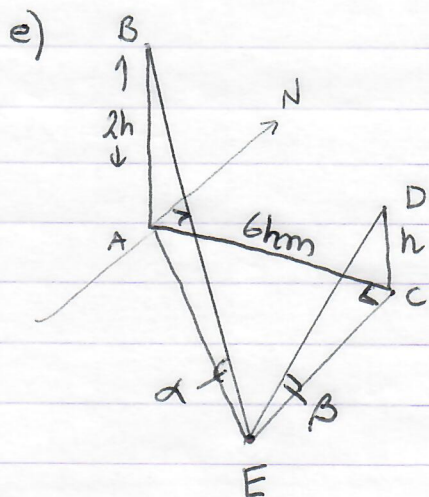 e)
B
2h
N
A
6hm
D
h
C
α
β
E